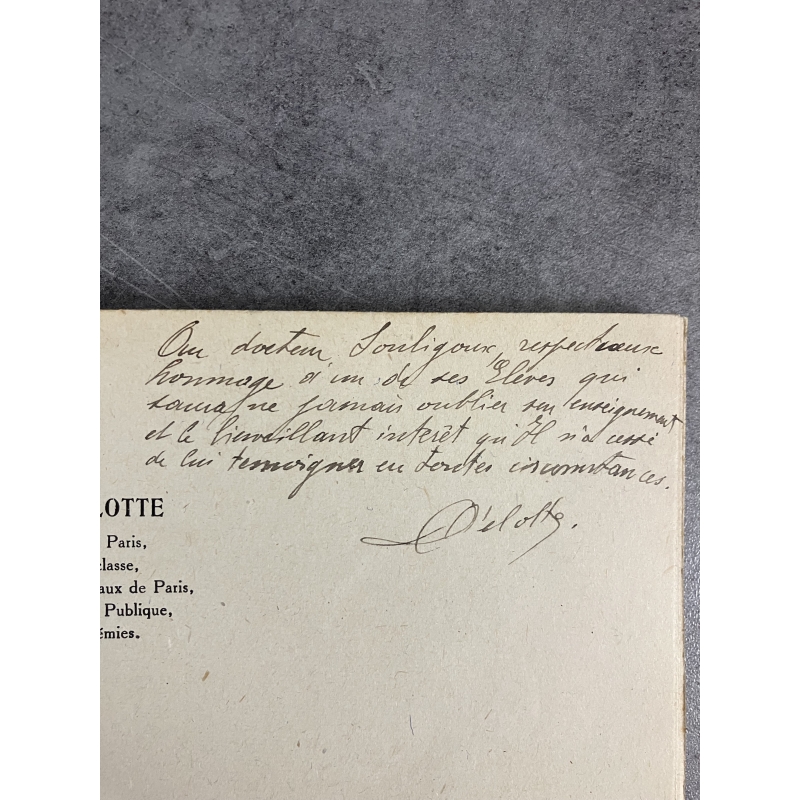 Au docteur Souligoux, respectueux
hommage d'un de ses Élèves qui
saura ne jamais oublier son enseignement
et le bienveillant intérêt qu'Il n'a cessé
de lui temoigner en toutes circonstances.
Delotte.
LOTTE
Paris,
classe,
aux de Paris,
Publique,
émies.